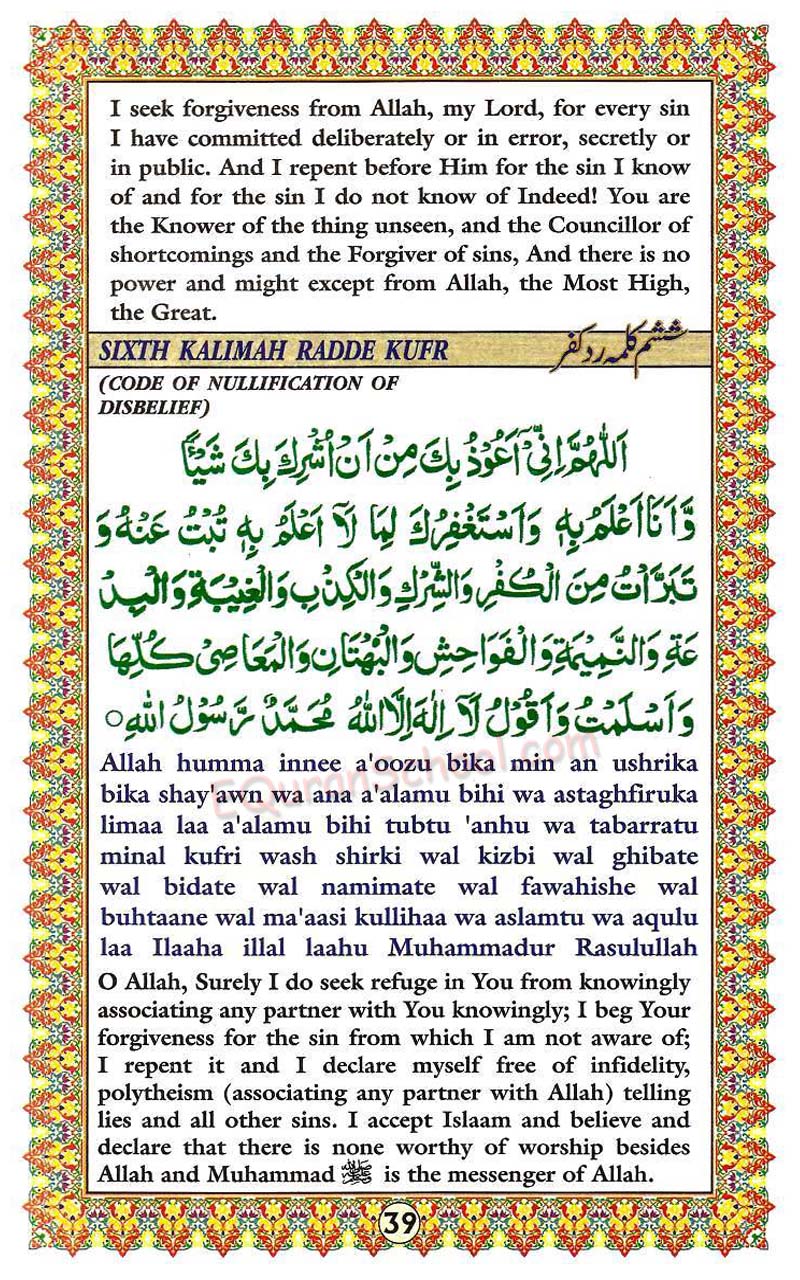 I seek forgiveness from Allah, my Lord, for every sin
I have committed deliberately or in error, secretly or
in public. And I repent before Him for the sin I know
of and for the sin I do not know of Indeed! You are
the Knower of the thing unseen, and the Councillor of
shortcomings and the Forgiver of sins, And there is no
power and might except from Allah, the Most High,
the Great.
SIXTH KALIMAH RADDE KUFR ششم کلمہ رد کفر
(CODE OF NULLIFICATION OF
DISBELIEF)
اَللّٰهُمَّ اِنِّیْۤ اَعُوْذُ بِكَ مِنْ اَنْ اُشْرِكَ بِكَ شَیْئًا
وَّاَنَا اَعْلَمُ بِهٖ وَاَسْتَغْفِرُكَ لِمَا لَاۤ اَعْلَمُ بِهٖ تُبْتُ عَنْهُ وَ
تَبَرَّاْتُ مِنَ الْكُفْرِ وَالشِّرْكِ وَالْكِذْبِ وَالْغِیْبَةِ وَالْبِدْ
عَةِ وَالنَّمِیْمَةِ وَالْفَوَاحِشِ وَالْبُهْتَانِ وَالْمَعَاصِیْ كُلِّهَا
وَاَسْلَمْتُ وَاَقُوْلُ لَاۤ اِلٰهَ اِلَّا اللهُ مُحَمَّدٌ رَّسُوْلُ اللهِ ○
EQuranSchool.com
Allah humma innee a'oozu bika min an ushrika
bika shay'awn wa ana a'alamu bihi wa astaghfiruka
limaa laa a'alamu bihi tubtu 'anhu wa tabarratu
minal kufri wash shirki wal kizbi wal ghibate
wal bidate wal namimate wal fawahishe wal
buhtaane wal ma'aasi kullihaa wa aslamtu wa aqulu
laa Ilaaha illal laahu Muhammadur Rasulullah
O Allah, Surely I do seek refuge in You from knowingly
associating any partner with You knowingly; I beg Your
forgiveness for the sin from which I am not aware of;
I repent it and I declare myself free of infidelity,
polytheism (associating any partner with Allah) telling
lies and all other sins. I accept Islaam and believe and
declare that there is none worthy of worship besides
Allah and Muhammad ﷺ is the messenger of Allah.
39